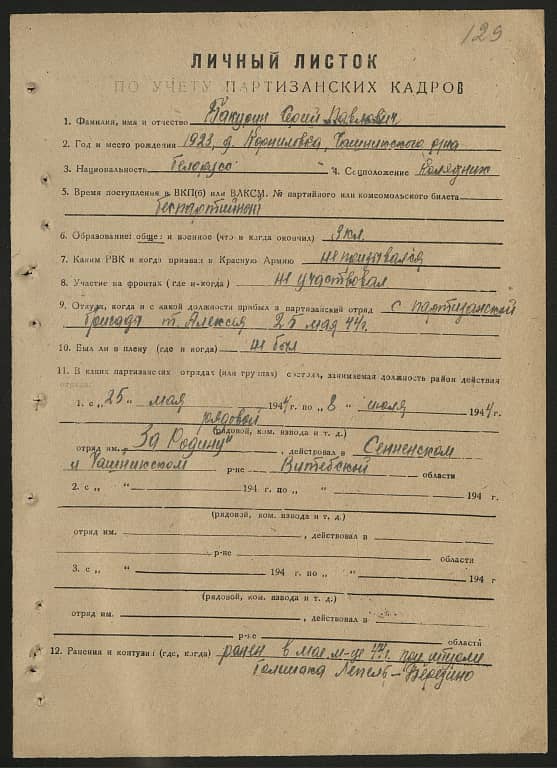 129
ЛИЧНЫЙ ЛИСТОК
ПО УЧЕТУ ПАРТИЗАНСКИХ КАДРОВ
1. Фамилия, имя и отчество Павлович
2. Год и место рождения 1923, д. Корниловка, Чашникского р-на
3. Национальность белорусс 4. Соцположение колхозник
5. Время поступления в ВКП(б) или ВЛКСМ. № партийного или комсомольского билета
беспартийный
6. Образование: общее и военное (что и когда окончил) кл.
7. Каким РВК и когда призван в Красную Армию не призывался
8. Участие на фронтах (где и когда) не участвовал
9. Откуда, когда и с какой должности прибыл в партизанский отряд с партизанской
бригады т. Алексея 25 мая 44 г.
10. Был ли в плену (где и когда) не был
11. В каких партизанских отрядах (или группах) состоял, занимаемая должность район действия
отряда:
1. с „25" мая 1944 г. по „8" июля 1944 г.
рядовой
(рядовой, ком. взвода и т. д.)
отряд им. „За Родину", действовал в Сенненском
и Чашникском р-не Витебской области
2. с „ " 194 г. по „ " 194 г.
(рядовой, ком. взвода и т. д.)
отряд им. , действовал в
р-не области
3. с „ " 194 г. по „ " 194 г
(рядовой, ком. взвода и т. д.)
отряд им. , действовал в
р-не области
12. Ранения и контузии (где, когда) ранен в мае м-це 44 г. при
Лепель-Березино